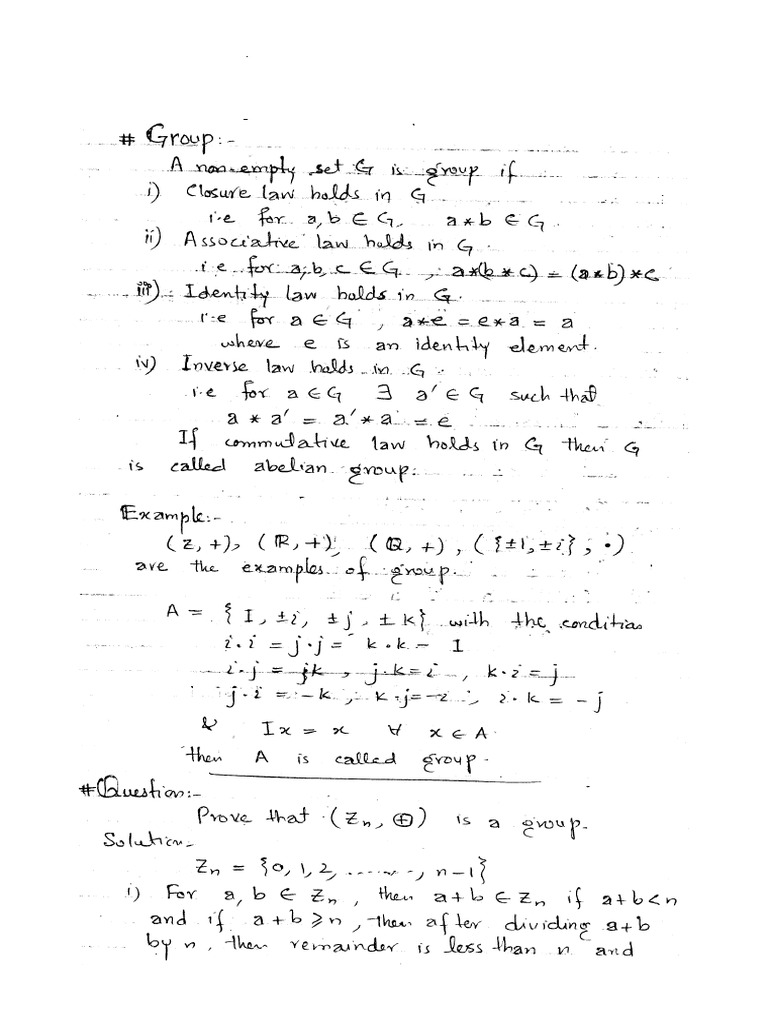 # Group:-
A non-empty set G is group if
i) Closure law holds in G
i.e for a, b ∈ G, a * b ∈ G.
ii) Associative law holds in G.
i.e for a, b, c ∈ G, a*(b * c) = (a * b) * c
iii) Identity law holds in G.
i.e for a ∈ G, a * e = e * a = a
where e is an identity element.
iv) Inverse law holds in G.
i.e for a ∈ G ∃ a' ∈ G such that
a * a' = a' * a = e
If commutative law holds in G then G
is called abelian group.
Example:-
(Z, +), (R, +), (Q, +), ({±1, ±i}, •)
are the examples of group.
A = {I, ±i, ±j, ±k} with the condition
i.i = j.j = k.k - I
i.j = k, j.k = i, k.i = j
j.i = -k, k.j = -i, i.k = -j
& Ix = x ∀ x ∈ A
then A is called group.
# Question:-
Prove that (Zn, ⊕) is a group.
Solution-
Zn = {0, 1, 2, ......., n-1}
i) For a, b ∈ Zn, then a + b ∈ Zn if a + b < n
and if a + b ≥ n, then after dividing a + b
by n, then remainder is less than n and